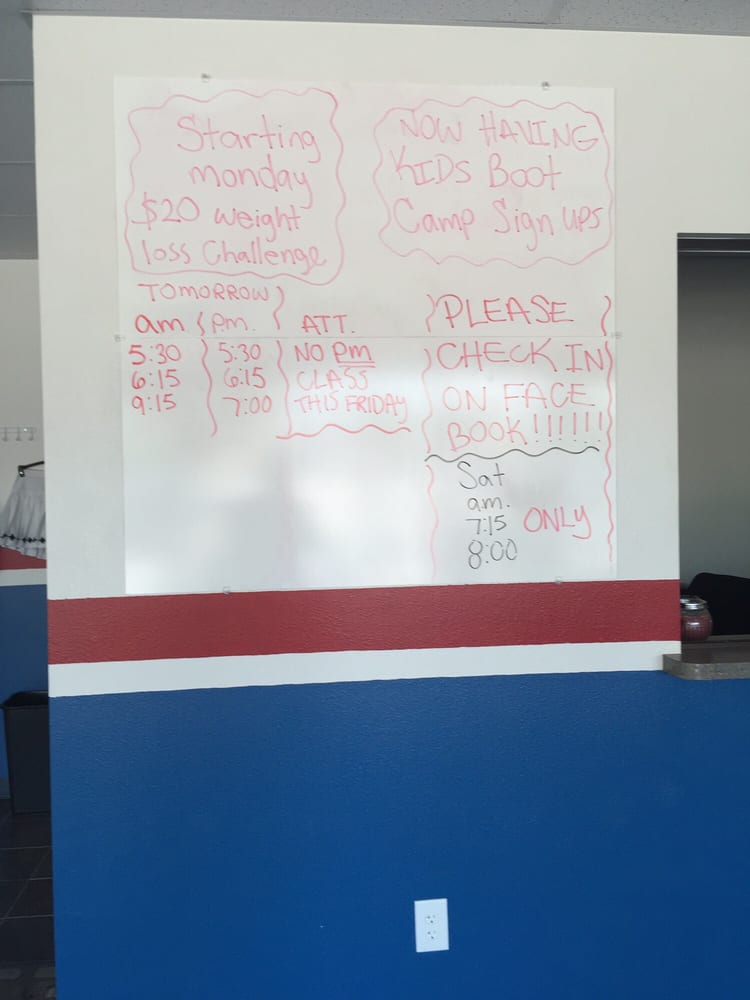 Starting
monday
$20 weight
loss Challenge
NOW HAVING
KIDS Boot
Camp Sign ups
TOMORROW
am. pm.
5:30 5:30
6:15 6:15
9:15 7:00
ATT.
NO pm
CLASS
THIS FRIDAY
PLEASE
CHECK IN
ON FACE
BOOK!!!!!!
Sat
a.m.
7:15 ONLY
8:00